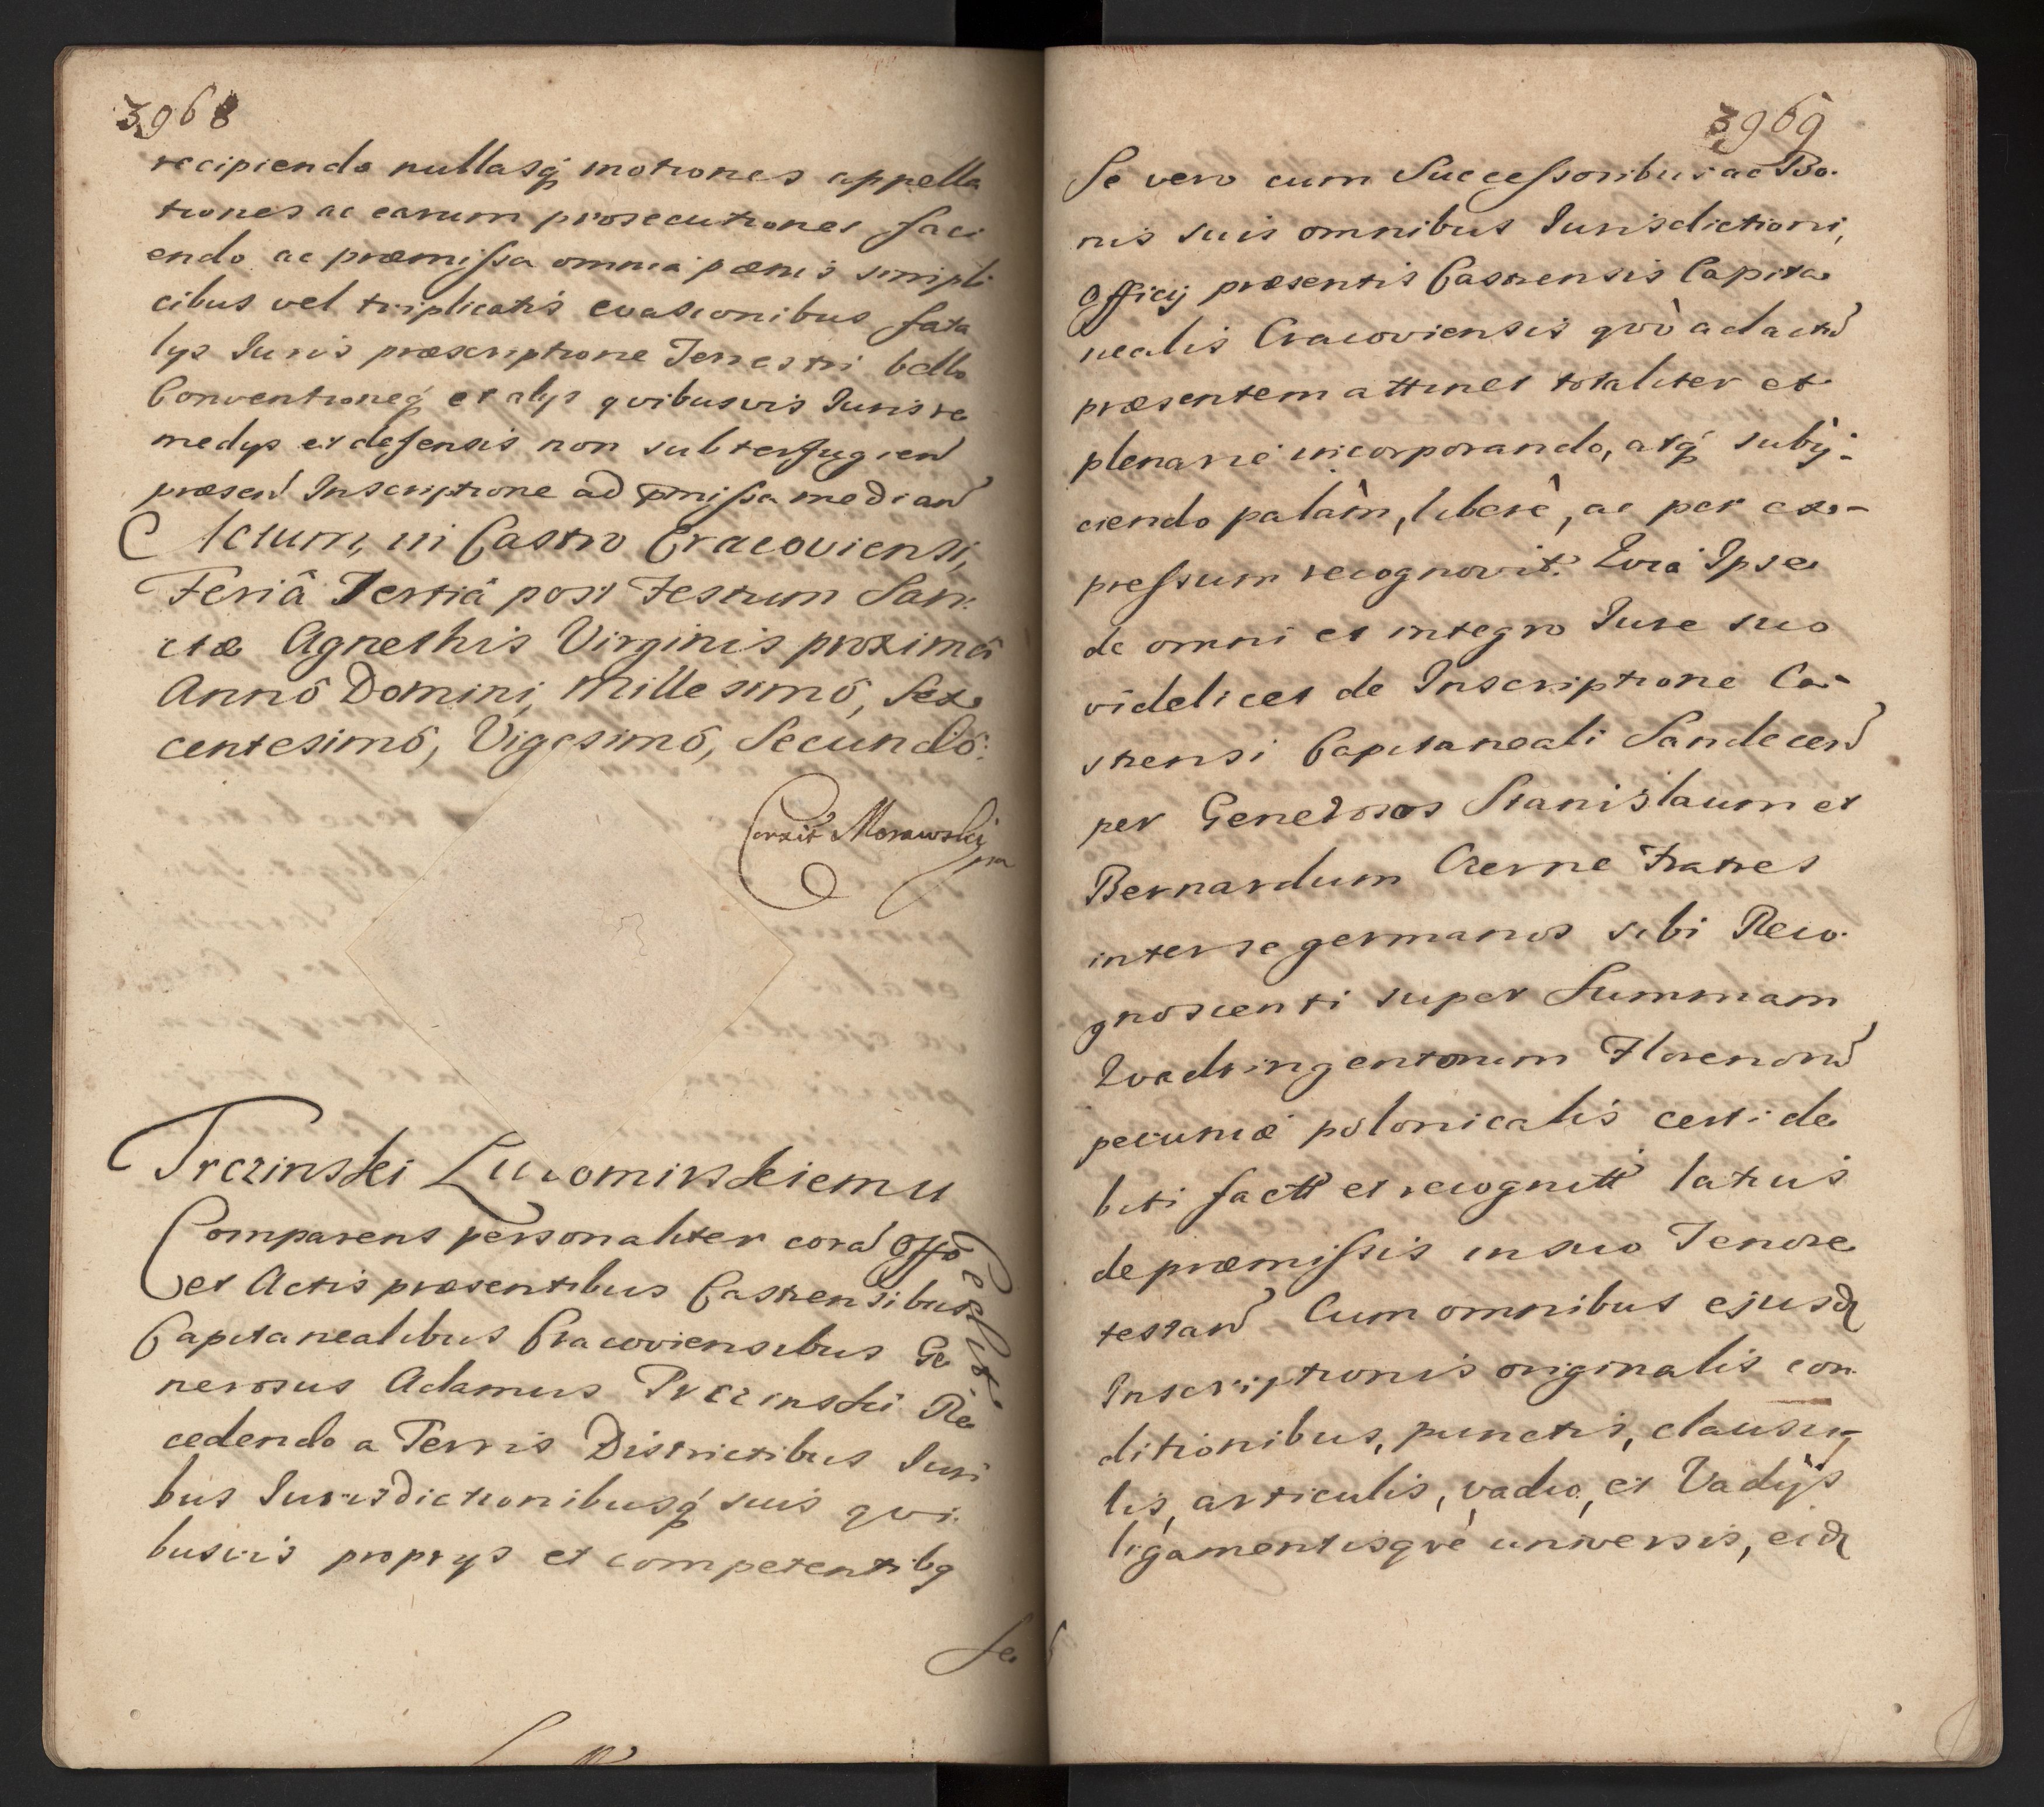 3968
recipiendo nullasq́ motiones appella
tiones ac earum prosecutiones faci
endo ac præmissa omnia pænis simpli
cibus vel triplicatis evasionibus fata
lys Iuris præscriptione Terrestri bello
Conventioneq́ et alys qvibusvis Iuris re
medys et defensis non subterfugien
præsen Inscriptione ad pmissa median
Actum, in Castro Cracoviensi,
Feriâ Tertiâ post Festum San:
ctæ Agnethis Virginis proximâ
Annô Domini, Millesimô, Sex
centesimô, Vigesimô, Secundô:
Corxit Morawski
mp
Trczinski Lucomirskiemu
Comparens personaliter cora Offo
et Actis præsentibus Castrensibus
Capitanealibus Cracoviensibus Ge
nerosus Adamus Trczinski Re
cedendo a Terris Districtibus Iuri
bus Iurisdictionibusq́ suis qvi
busvis proprys et competentibq
Se
3969
Se vero cum Successoribus ac Bo
nis suis omnibus Iurisdictioni,
Officij præsentis Castrensis Capita
nealis Cracoviensis qvò ad actu
præsentem attinet totaliter et
plenarie incorporando, atq́ subij
ciendo palàm, liberè, ac per ex
pressum recognovit. Qvia Ipse
de omni et integro Iure suo
videlicet de Inscriptione Ca
strensi Capitaneali Sandecen
per Generosos Stanislaum et
Bernardum Czerne Fratres
inter se germanos sibi Reco
gnoscenti super Summam
Qvadringentorum Florenoru
pecuniæ polonicalis certi de
biti factt et recognitt latius
de præmissis in suo Tenore
testan Cum omnibus ejusd
Inscriptionis originalis con
ditionibus, punctis, clausu
lis, articulis, vadio, et Vadijs
ligamentisqvè universis, eid